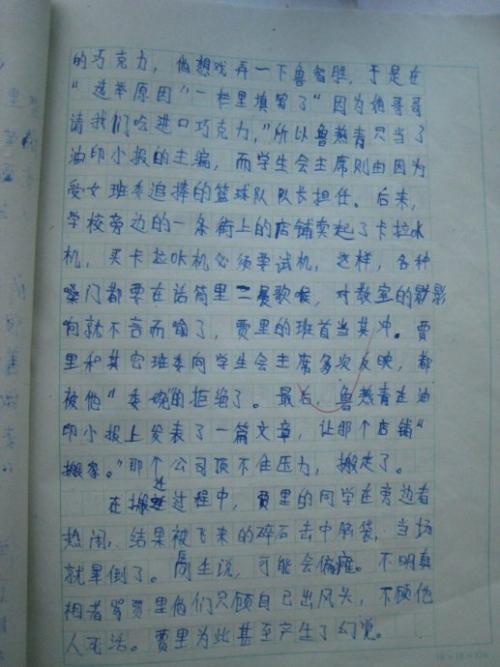 的巧克力，他想戏弄一下鲁智胜，于是在
“选举原因”一栏里填写了“因为他哥哥
请我们吃进口巧克力，”所以鲁燕青只当了
油印小报的主编，而学生会主席则由因为
受女班委追捧的篮球队队长担任。后来，
学校旁边的一条街上的店铺卖起了卡拉OK
机，买卡拉OK机必须要试机，这样，各种
嗓门都要在话筒里一展歌喉，对教室的影
响就不言而喻了，贾里的班首当其冲。贾
里和其它班委向学生会主席多次反映，都
被他“委婉”的拒绝了。最后，鲁燕青在油
印小报上发表了一篇文章，让那个店铺“
搬家。”那个公司顶不住压力，搬走了。
在搬迁过程中，贾里的同学在旁边看
热闹，结果被飞来的碎石击中脑袋，当场
就晕倒了。医生说，可能会偏瘫。不明真
相者骂贾里他们只顾自己出风头，不顾他
人死活。贾里为此甚至产生了幻觉。